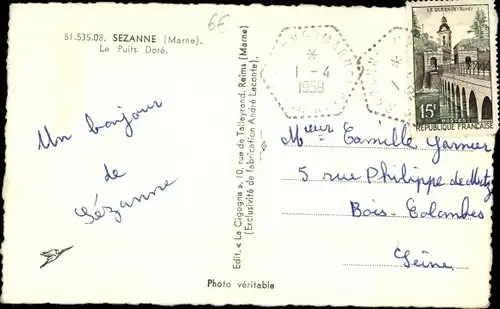 6€
51.535.08. SEZANNE (Marne).
Le Puits Doré.
Un bonjour
de
Sézanne
Edit. « La Cigogne », 10, rue de Talleyrand, Reims (Marne)
(Exclusivité de fabrication André Leconte).
Photo véritable
1 - 4
1959
LE QUESNOY (Nord)
15F
POSTES
REPUBLIQUE FRANÇAISE
Mr Camille Garnier
5 rue Philippe de Metz
Bois-Colombes
Seine